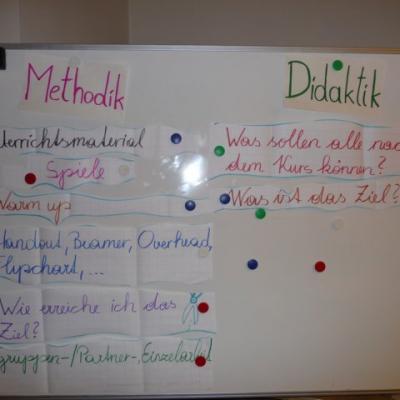 Methodik
Unterrichtsmaterial
Spiele
Warm up
Handout, Beamer, Overhead,
Flipchart, ...
Wie erreiche ich das
Ziel?
gruppen-/Partner-, Einzelarbeit
Didaktik
Was sollen alle nach
dem Kurs können?
Was ist das Ziel?